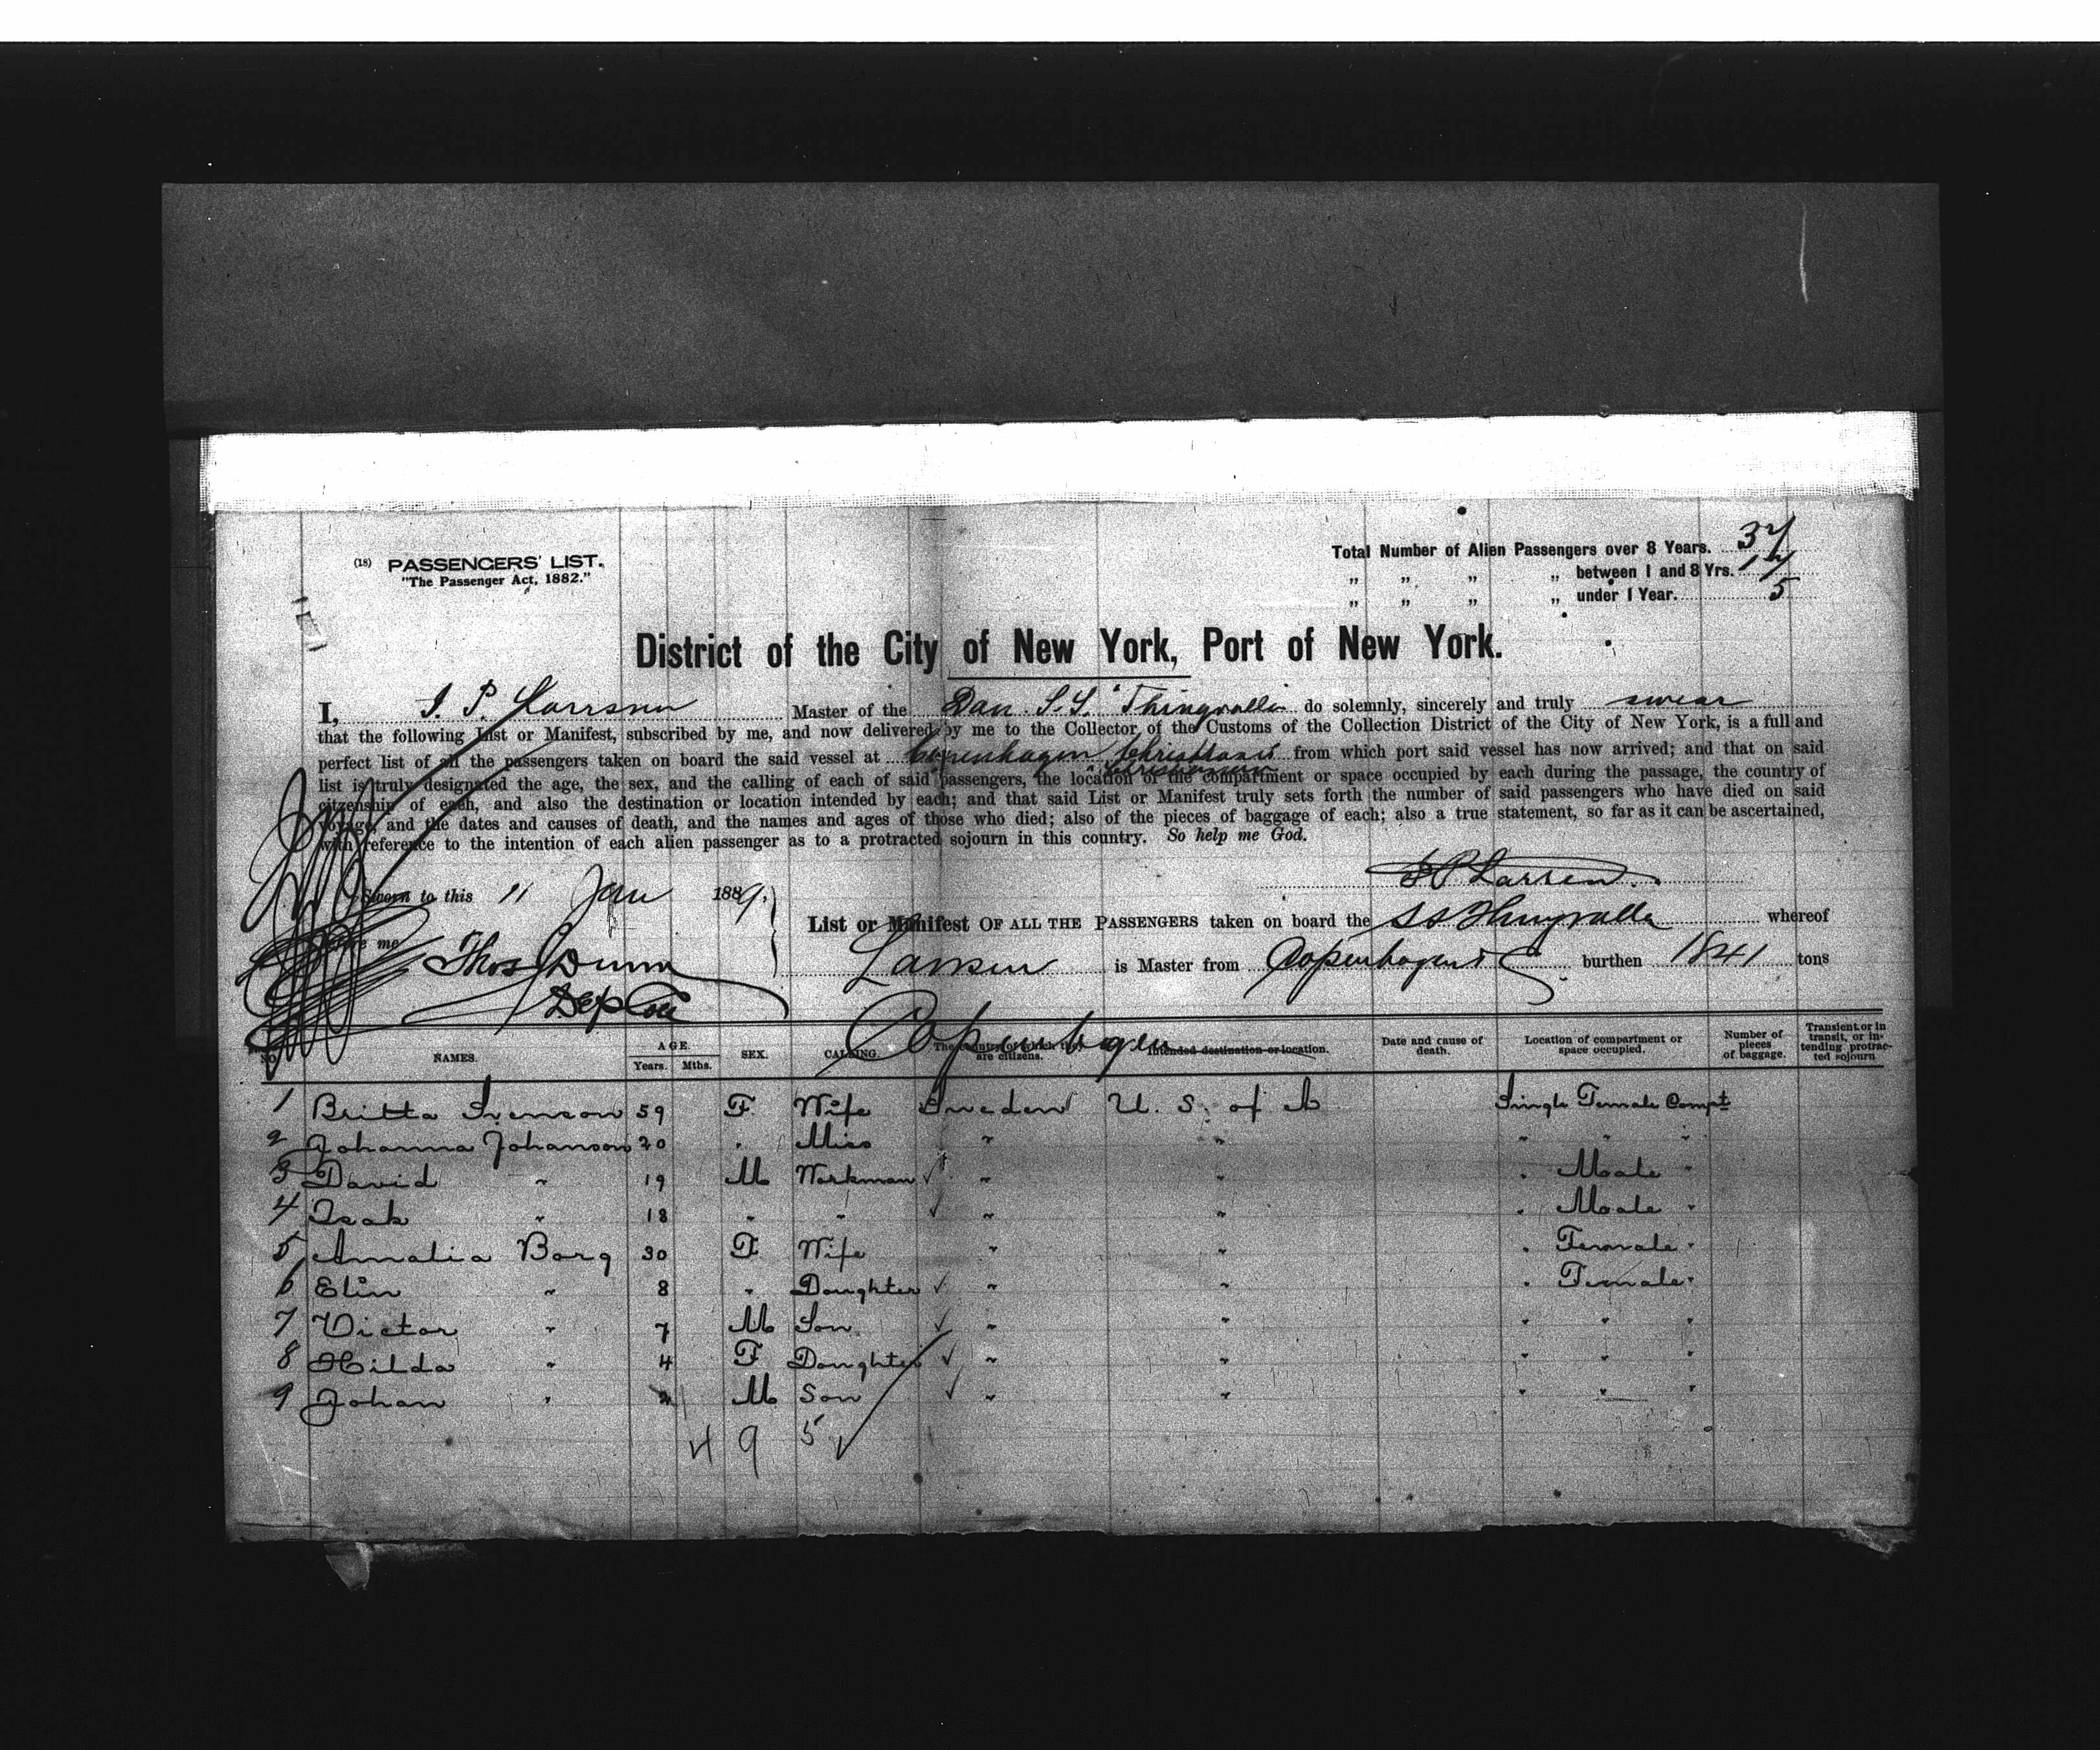 (18) PASSENGERS' LIST.
"The Passenger Act, 1882."
Total Number of Alien Passengers over 8 Years. 37
„ „ „ „ between 1 and 8 Yrs. 17
„ „ „ „ under 1 Year. 5
District of the City of New York, Port of New York.
I, Master of the Dan. S.S. "Thingvalla do solemnly, sincerely and truly swear
that the following List or Manifest, subscribed by me, and now delivered by me to the Collector of the Customs of the Collection District of the City of New York, is a full and
perfect list of all the passengers taken on board the said vessel at Copenhagen Christiania from which port said vessel has now arrived; and that on said
list is truly designated the age, the sex, and the calling of each of said passengers, the location of the compartment or space occupied by each during the passage, the country of
citizenship of each, and also the destination or location intended by each; and that said List or Manifest truly sets forth the number of said passengers who have died on said
voyage, and the dates and causes of death, and the names and ages of those who died; also of the pieces of baggage of each; also a true statement, so far as it can be ascertained,
with reference to the intention of each alien passenger as to a protracted sojourn in this country. So help me God.
Larsen.
Sworn to this 11 Jan 1889.
List or Manifest OF ALL THE PASSENGERS taken on board the SS Thingvalla whereof
before me Thos Dunn
Larsen is Master from Copenhagen burthen 1841 tons
Dep Col
Copenhagen
NO. NAMES. AGE. Years. Mths. SEX. CALLING. The country of which they are citizens. Intended destination or location. Date and cause of death. Location of compartment or space occupied. Number of pieces of baggage. Transient or in transit, or intending protracted sojourn
1 Britta Svenson 59 F Wife Sweden U. S. of A Single Female Compt
2 Johanna Johanson 20 " Miss " " " " "
3 David " 19 M Workman " " " Male "
4 Isak " 18 " " " " " Male "
5 Amalia Borg 30 F Wife " " " Female "
6 Elin " 8 " Daughter " " " Female "
7 Victor " 7 M Son " " " " "
8 Hilda " 4 F Daughter " " " " "
9 Johan " 2 M Son " " " " "
4 9 5